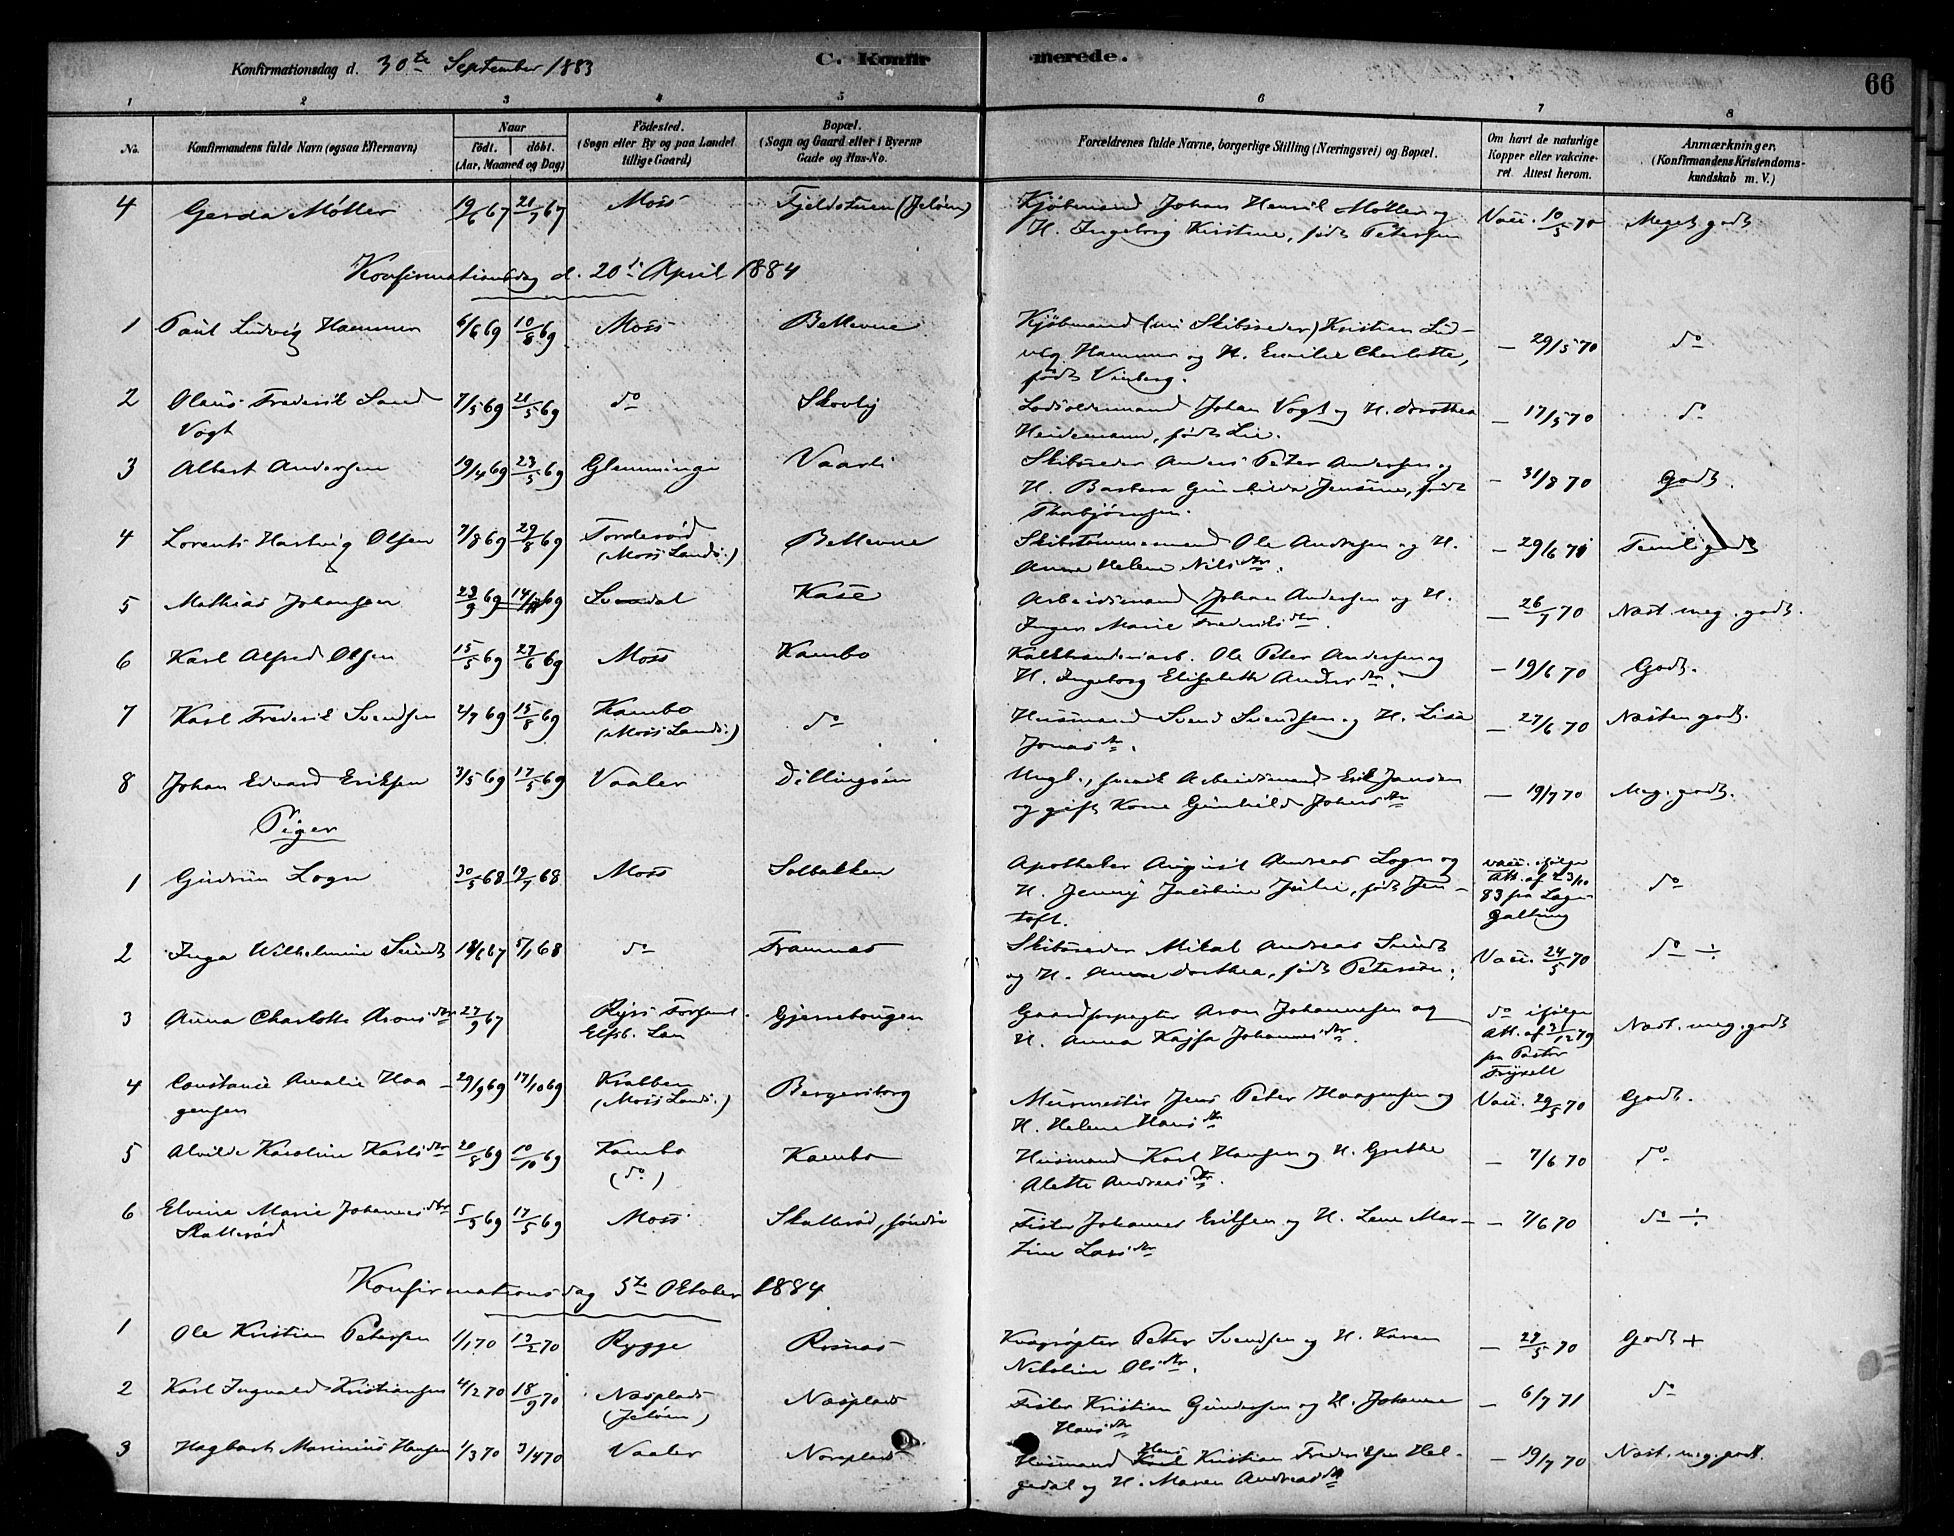 Konfirmationsdag d. 30te September 1883 C. Konfirmerede. 66
1 2 3 4 5 6 7 8
No. Konfirmandens fulde Navn (ogsaa Efternavn) Naar födt. döbt. (Aar, Maaned og Dag) Födested. (Sogn eller By og paa Landet tillige Gaard) Bopæl. (Sogn og Gaard eller i Byerne Gade og Hus-No. Forældrenes fulde Navne, borgerlige Stilling (Næringsvei) og Bopæl. Om havt de naturlige Kopper eller vakcineret. Attest herom. Anmærkninger. (Konfirmandens Kristendomskundskab m. V.)
4 Gerda Møller 19/6 67 21/7 67 Moss Fjeldstuen (Jeløen) Kjøbmand Johan Henrik Møller og Vacc. 10/5 70 Meget godt
H. Ingeborg Kristine, født Petersen
Konfirmationsdag d. 20de April 1884
1 Paul Ludvig Hammer 6/6 69 10/8 69 Moss Bellevue Kjøbmand (nu Skibsreder) Kristian Lud- — 29/5 70 do
vig Hammer og H. Emilie Charlotte,
født Vinberg.
2 Olaus Frederik Sand 7/3 69 21/5 69 do Skovly Lodsoldermand Johan Vogt og H. Dorothea — 17/5 70 do
Vogt Heidemann, født Lie.
3 Albert Andersen 19/4 69 23/5 69 Glemminge Vaarli Skibsreder Anders Peter Andersen og — 31/8 70 Godt.
H. Barbara Gunhilda Jensine, født
Thorbjørnsen.
4 Lorents Hartvig Olsen 7/8 69 29/8 69 Torderød Bellevue Skibstømmermand Ole Andersen og H. — 29/6 71 Temlig godt
(Moss Lands.) Anne Helene Nilsdtr.
5 Mathias Johansen 23/9 69 69 Svendal Kase Arbeidsmand Johan Andersen og H. — 26/7 70 Næst. meg. godt.
Inger Marie Frederiksdtr.
6 Karl Alfred Olsen 15/5 69 27/6 69 Moss Kambo Kalkbrænderiarb. Ole Peter Andersen og — 19/6 70 Godt.
H. Ingeborg Elisabeth Andersdtr.
7 Karl Frederik Svendsen 2/7 69 15/8 69 Kambo do Husmand Svend Svendsen og H. Lisa — 27/6 70 Næsten godt.
(Moss Lands.) Jonasdtr.
8 Johan Edvard Eriksen 3/5 69 17/5 69 Vaaler Dillingøen Ungk., svensk Arbeidsmand Erik Jansen — 19/7 70 Meg. godt.
og gift Kone Gunhild Johnsdtr
Piger
1 Gudrun Logn 30/5 68 19/7 68 Moss Solbakken Apotheker August Andreas Logn og vacc. ifølge do
H. Jenny Jacobine Julie, født Jen- Att. af 23/10
toft. 83 fra Læge
Galtung
2 Inga Wilhelmine Sundt 18/6 67 5/1 68 do Framnæs Skibsreder Mikal Andreas Sundt Vacc. 24/5 70 do ÷
og H. Anne Dorthea, født Peterson.
3 Anna Charlotte Aronsdtr 27/9 67 Gjerrebougen Gaardforpagter Aron Johannesen og do ifølge Næst. meg. godt
Elfsb. Län H. Anna Kajsa Johannesdtr. Att. af 3/12 79
fra Pastor
Fryxell
4 Constance Amalie Haa- 29/9 69 17/10 69 Krabben Bergersborg Murmester Jens Peter Haagensen og Vacc. 29/5 70 Godt.
gensen (Moss Lands.) H. Helene Hansdtr
5 Alvilde Karoline Karlsdtr 20/8 69 10/10 69 Kambo Kambo Husmand Karl Hansen og H. Grethe — 7/6 70 do
(do) Alette Andreasdtr.
6 Elvine Marie Johannesdtr 5/3 69 17/5 69 Moss Skallerød, søndre Fisker Johannes Eriksen og H. Lene Mar- — 7/6 70 do ÷
Skallerød tine Larsdtr
Konfirmationsdag 5te Oktober 1884
1 Ole Kristian Petersen 1/1 70 13/2 70 Rygge Rosnæs Kvægrøgter Peter Svendsen og H. Karen — 29/5 70 Godt +
Nikoline Olsdtr.
2 Karl Ingvald Kristiansen 4/2 70 18/9 70 Næsplads Næsplads Fisker Kristian Gundersen og H. Johanne — 6/7 71 do
(Jeløen) Hansdtr
3 Hagbart Marinius Hansen 1/3 70 3/4 70 Vaaler Noreplads Husmand Hans Kristian Frederiksen Hel- — 19/7 70 Næst. meg. godt.
gedal og H. Maren Andreasdtr